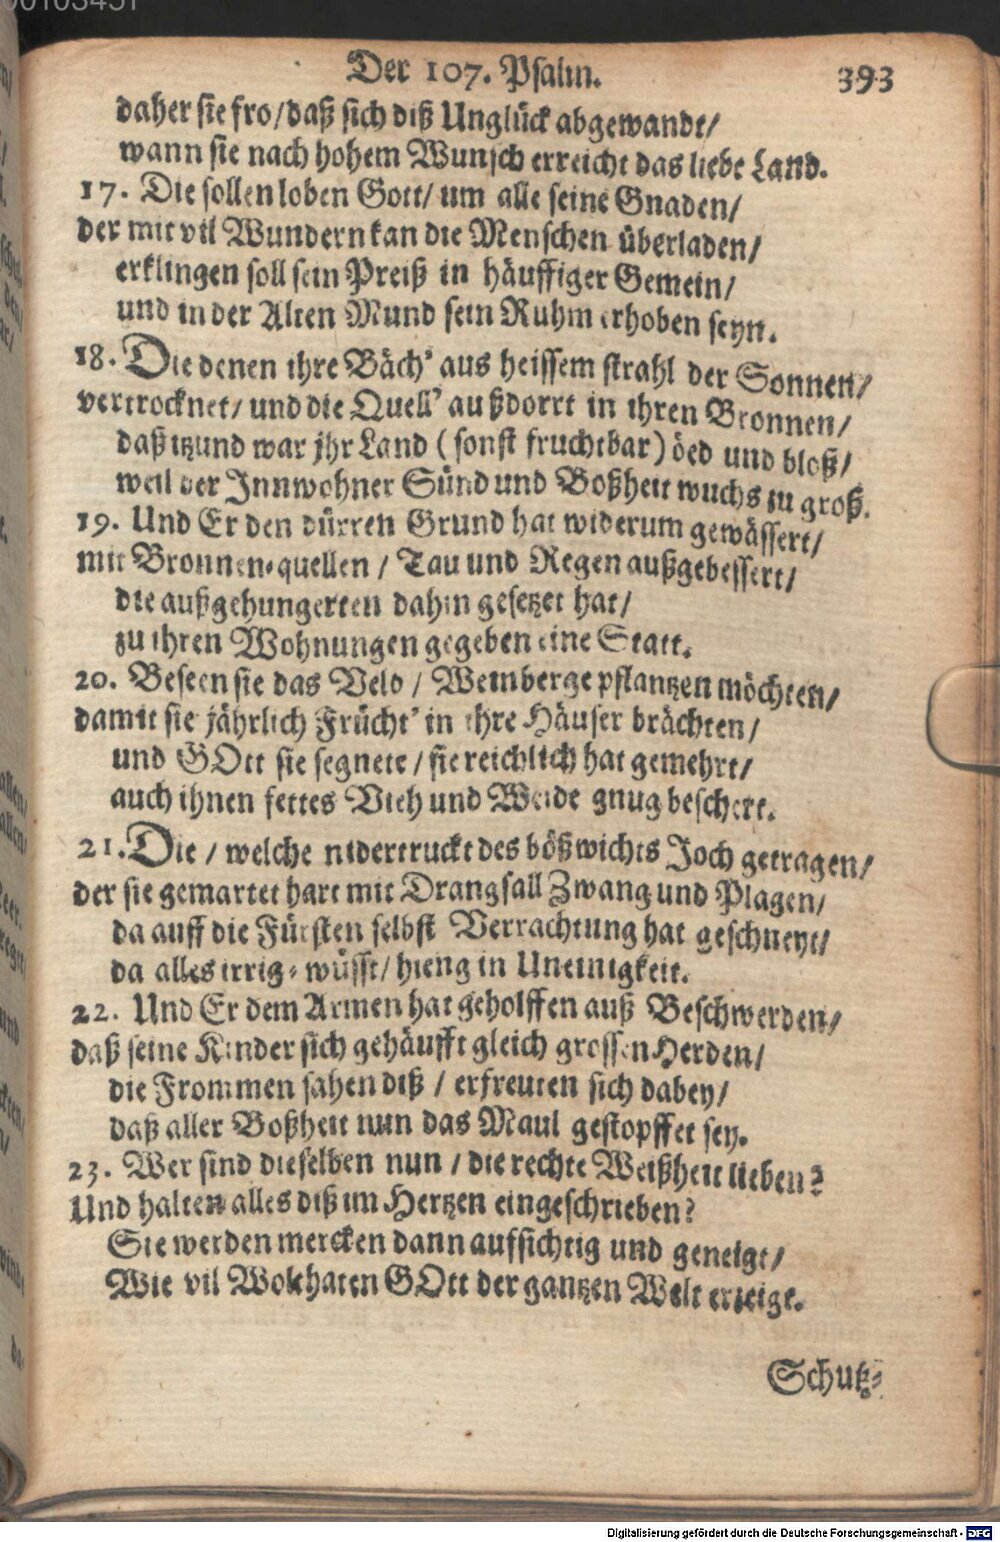 Der 107. Psalm. 393
daher sie fro/daß sich diß Unglück abgewandt/
wann sie nach hohem Wunsch erreicht das liebe Land.
17. Die sollen loben Gott/ um alle seine Gnaden/
der mit vil Wundern kan die Menschen überladen/
erklingen soll sein Preiß in häuffiger Gemein/
und in der Alten Mund sein Ruhm erhoben seyn.
18. Die denen ihre Bäch' aus heissem strahl der Sonnen/
vertrocknet/ und die Quell' außdorrt in ihren Bronnen/
daß itzund war jhr Land (sonst fruchtbar) öed und bloß/
weil der Innwohner Sünd und Boßheit wuchs zu groß.
19. Und Er den dürren Grund hat widerum gewässert/
mit Bronnen-quellen / Tau und Regen außgebessert/
die außgehungerten dahin gesetzet hat/
zu ihren Wohnungen gegeben eine Statt.
20. Beseen sie das Veld / Weinberge pflantzen möchten/
damit sie jährlich Frücht' in ihre Häuser brächten/
und GOtt sie segnete / sie reichlich hat gemehrt/
auch ihnen fettes Vieh und Weide gnug beschert.
21. Die / welche nidertruckt des bößwichts Joch getragen/
der sie gemartet hart mit Drangsall Zwang und Plagen/
da auff die Fürsten selbst Verrachtung hat geschneyt/
da alles irrig-wüsst/ hieng in Uneinigkeit.
22. Und Er dem Armen hat geholffen auß Beschwerden/
daß seine Kinder sich gehäufft gleich grossen Herden/
die Frommen sahen diß / erfreuten sich dabey/
daß aller Boßheit nun das Maul gestopffet sey.
23. Wer sind dieselben nun / die rechte Weißheit lieben?
Und halten alles diß im Hertzen eingeschrieben?
Sie werden mercken dann aufsichtig und geneigt/
Wie vil Wolthaten GOtt der gantzen Welt erzeigt.
Schutz-
Digitalisierung gefördert durch die Deutsche Forschungsgemeinschaft - DFG